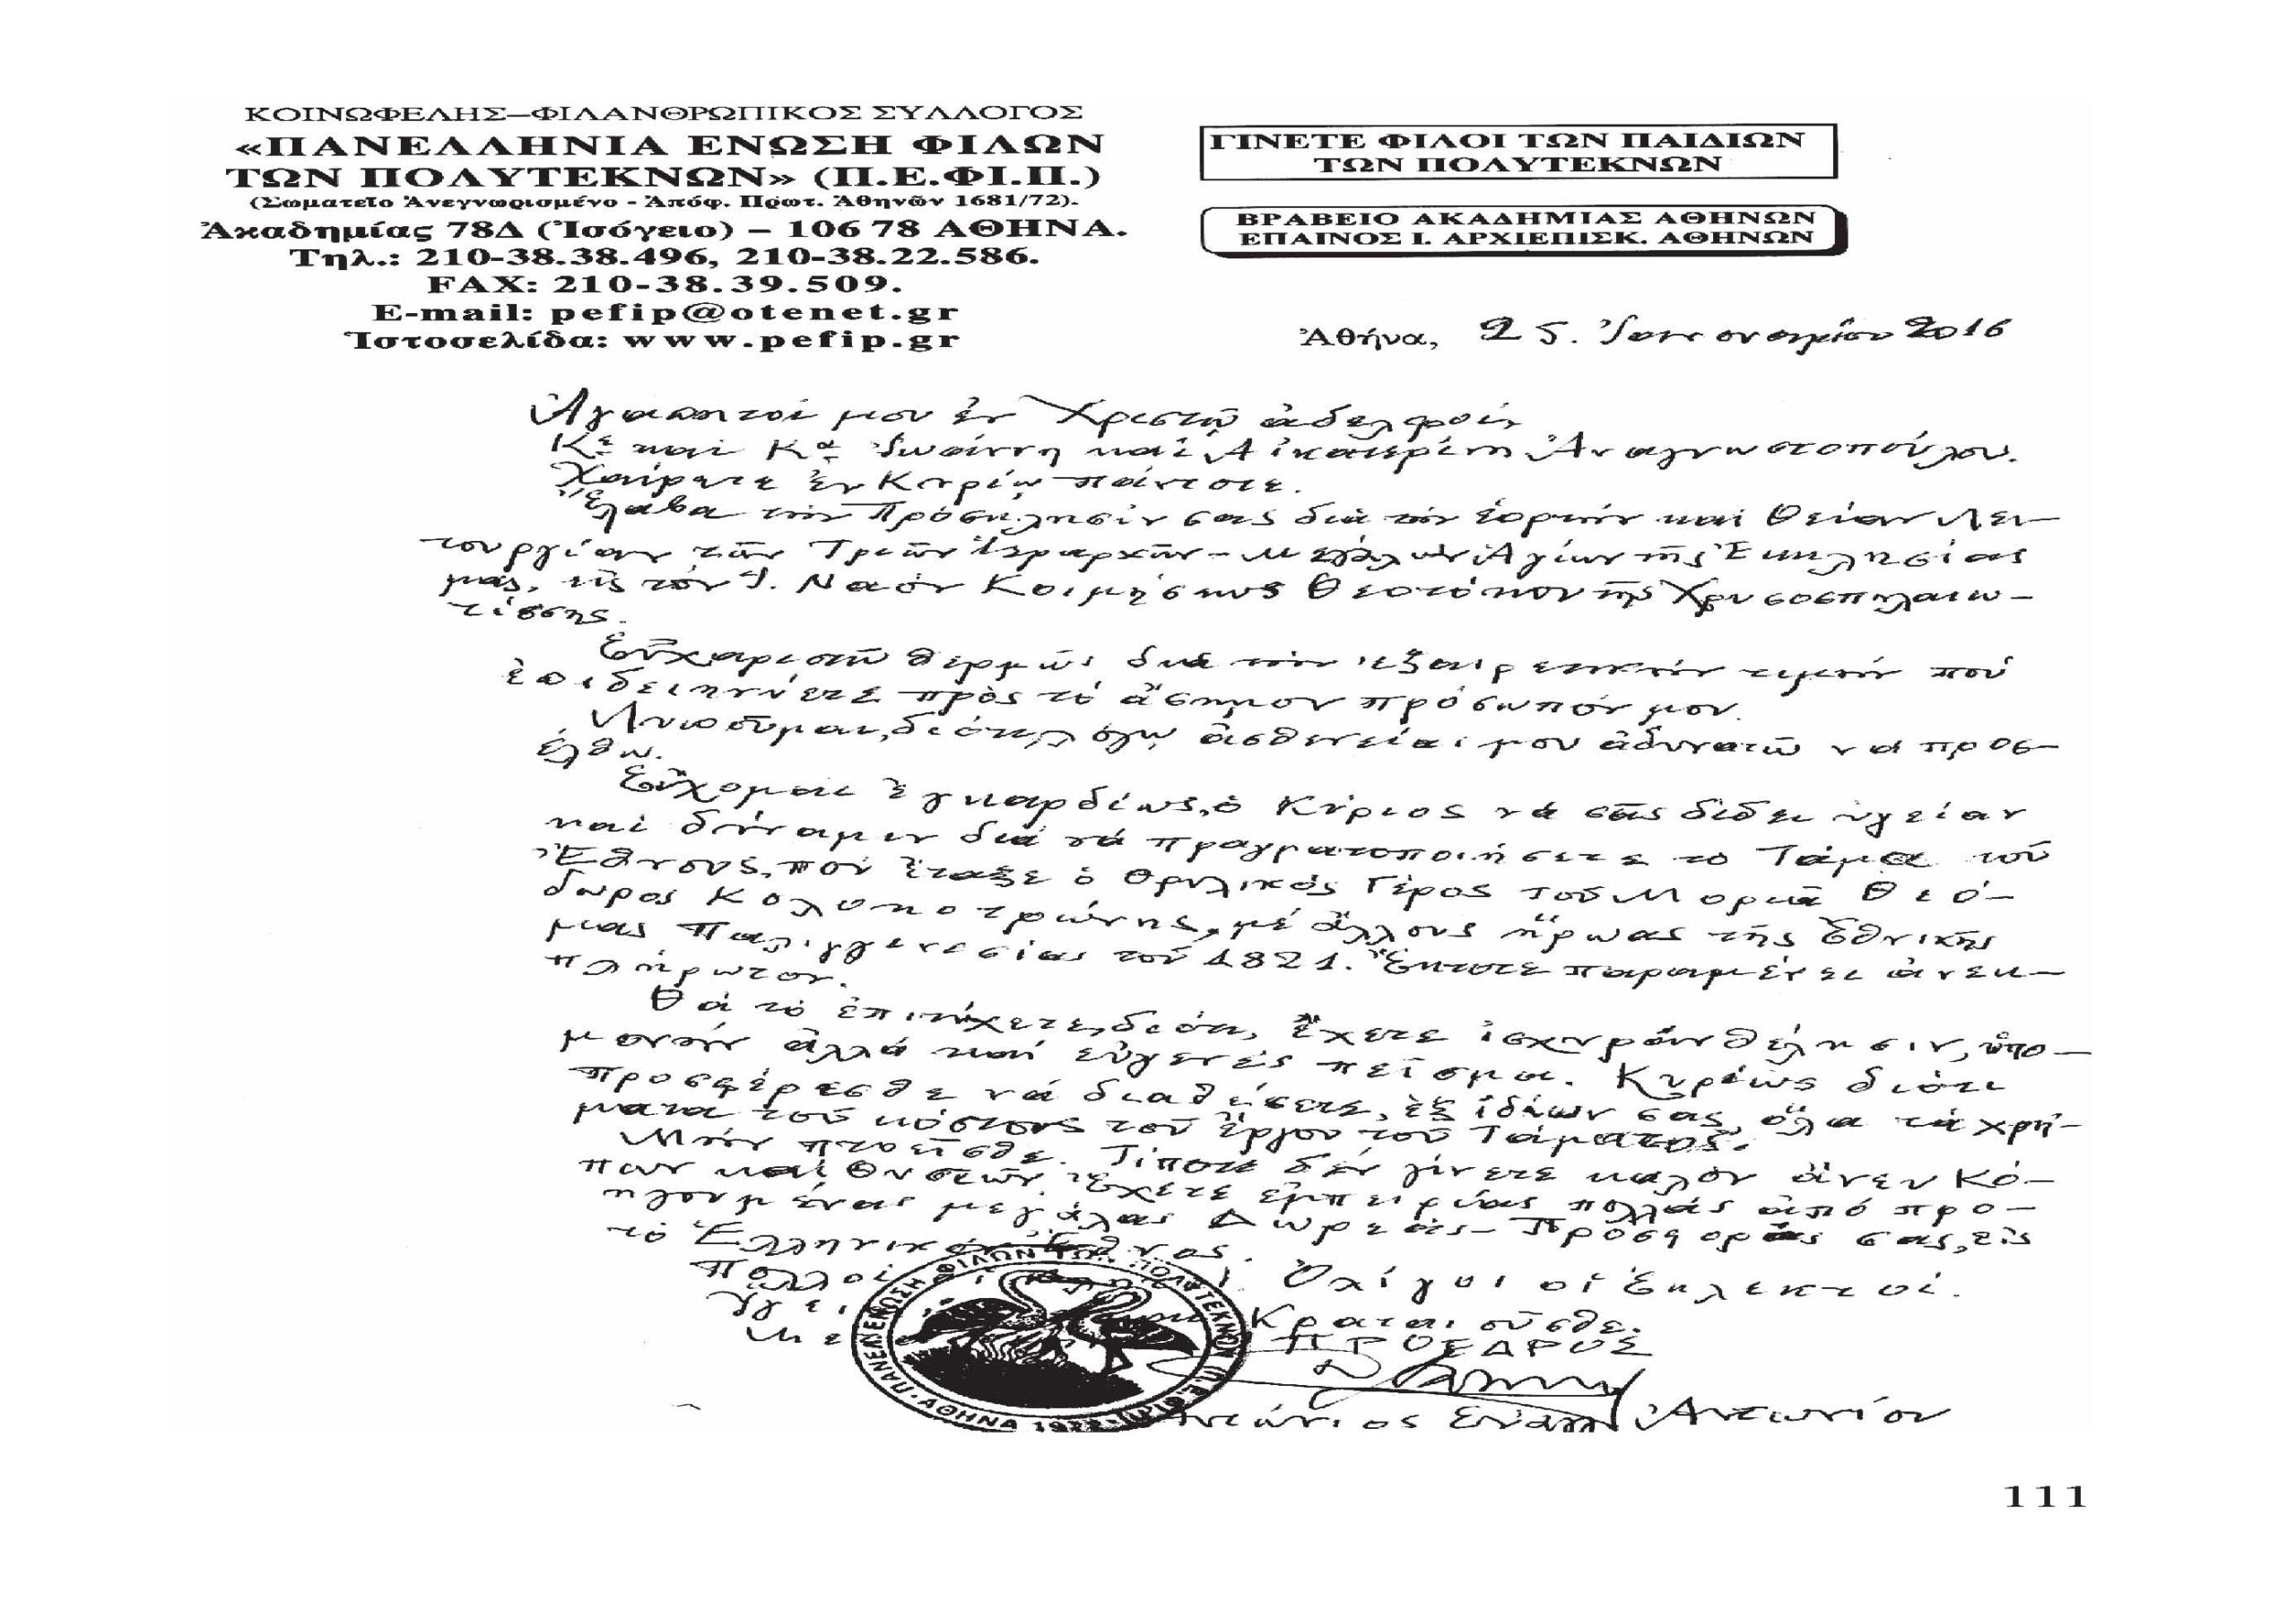 ΚΟΙΝΩΦΕΛΗΣ–ΦΙΛΑΝΘΡΩΠΙΚΟΣ ΣΥΛΛΟΓΟΣ
«ΠΑΝΕΛΛΗΝΙΑ ΕΝΩΣΗ ΦΙΛΩΝ
ΤΩΝ ΠΟΛΥΤΕΚΝΩΝ» (Π.Ε.ΦΙ.Π.)
(Σωματεῖο Ἀνεγνωρισμένο - Ἀπόφ. Πρωτ. Ἀθηνῶν 1681/72).
Ἀκαδημίας 78Δ (Ἰσόγειο) – 106 78 ΑΘΗΝΑ.
Τηλ.: 210-38.38.496, 210-38.22.586.
FAX: 210-38.39.509.
E-mail: pefip@otenet.gr
Ἱστοσελίδα: www.pefip.gr
ΓΙΝΕΤΕ ΦΙΛΟΙ ΤΩΝ ΠΑΙΔΙΩΝ
ΤΩΝ ΠΟΛΥΤΕΚΝΩΝ
ΒΡΑΒΕΙΟ ΑΚΑΔΗΜΙΑΣ ΑΘΗΝΩΝ
ΕΠΑΙΝΟΣ Ι. ΑΡΧΙΕΠΙΣΚ. ΑΘΗΝΩΝ
Ἀθήνα, 25. Ἰανουαρίου 2016
Ἀγαπητοί μου ἐν Χριστῷ ἀδελφοί,
Κε καί Κα Ἰωάννη καί Αἰκατερίνη Ἀναγνωστοπούλου.
Χαίρετε ἐν Κυρίῳ πάντοτε.
Ἔλαβα τήν Πρόσκλησίν σας διά τήν ἑορτήν καί Θείαν Λει–
τουργίαν τῶν Τριῶν Ἱεραρχῶν – Μεγάλων Ἁγίων τῆς Ἐκκλησίας
μας, εἰς τόν Ἱ. Ναόν Κοιμήσεως Θεοτόκου τῆς Χρυσοσπηλαιω–
τίσσης.
Εὐχαριστῶ θερμῶς διά τήν ἐξαιρετικήν τιμήν πού
ἐπιδεικνύετε πρὸς τό ἄσημον πρόσωπόν μου.
Λυποῦμαι, διότι λόγῳ ἀσθενείας μου ἀδυνατῶ νά προσ–
έλθω.
Εὔχομαι ἐγκαρδίως, ὁ Κύριος νά σᾶς δίδει ὑγείαν
καί δύναμιν διά νά πραγματοποιήσετε τό Τάμα τοῦ
Ἔθνους, πού ἔταξε ὁ θρυλικός Γέρος τοῦ Μοριᾶ Θεό–
δωρος Κολοκοτρώνης, μέ ἄλλους ἥρωας τῆς Ἐθνικῆς
μας Παλιγγενεσίας τοῦ 1821. Ἔκτοτε παραμένει ἀνεκ–
πλήρωτον.
Θά τό ἐπιτύχετε, διότι, ἔχετε ἰσχυράν θέλησιν, ὑπο–
μονήν ἀλλά καί εὐγενές πεῖσμα. Κυρίως διότι
προσφέρεσθε νά διαθέσετε, ἐξ ἰδίων σας, ὅλα τά χρή–
ματα τοῦ κόστους τοῦ ἔργου τοῦ Τάματος.
Μήν πτοεῖσθε. Τίποτε δέν γίνετε καλόν ἄνευ Κό–
πων καί Θυσιῶν. Ἔχετε ἐμπειρίας πολλάς ἀπό προ–
ηγουμένας μεγάλας Δωρεάς – Προσφοράς σας, εἰς
τό Ἑλληνικόν Ἔθνος.
Πολλοί Ὀλίγοι οἱ Ἐκλεκτοί.
Κραταιοῦσθε.
ΠΡΟΕΔΡΟΣ
Ἀντωνίου
ΠΑΝΕΛ. ΕΝΩΣΗ ΦΙΛΩΝ ΤΩΝ ΠΟΛΥΤΕΚΝΩΝ (Π.Ε.ΦΙ.Π.) ΑΘΗΝΑ
111